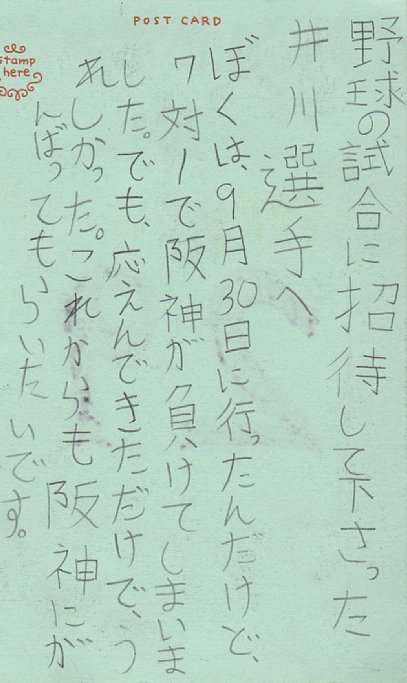 POST CARD
stamp
here
野球の試合に招待して下さった
井川選手へ
ぼくは、9月30日に行ったんだけど、
7対1で阪神が負けてしまいま
した。でも、応えんできただけで、う
れしかった。これからも阪神にが
んばってもらいたいです。